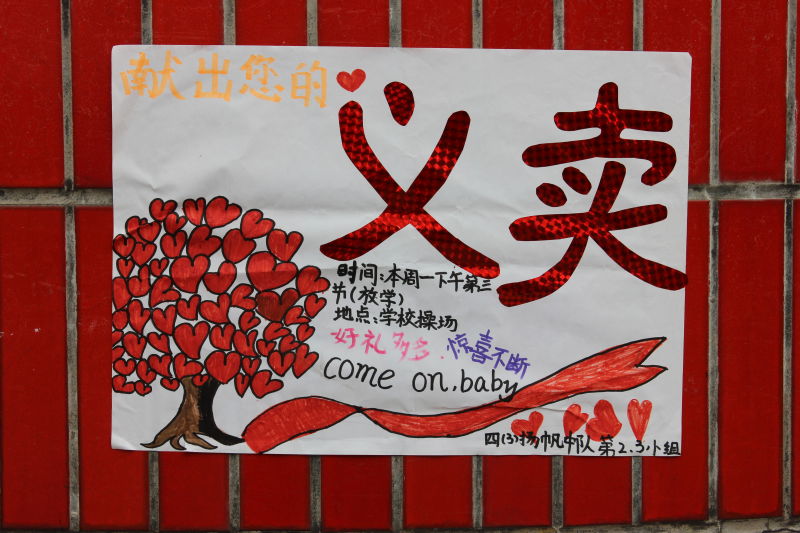 献出您的
义卖
时间:本周一下午第三
节(放学)
地点:学校操场
好礼多多.惊喜不断
come on.baby
四(3)扬帆中队第2、3小组